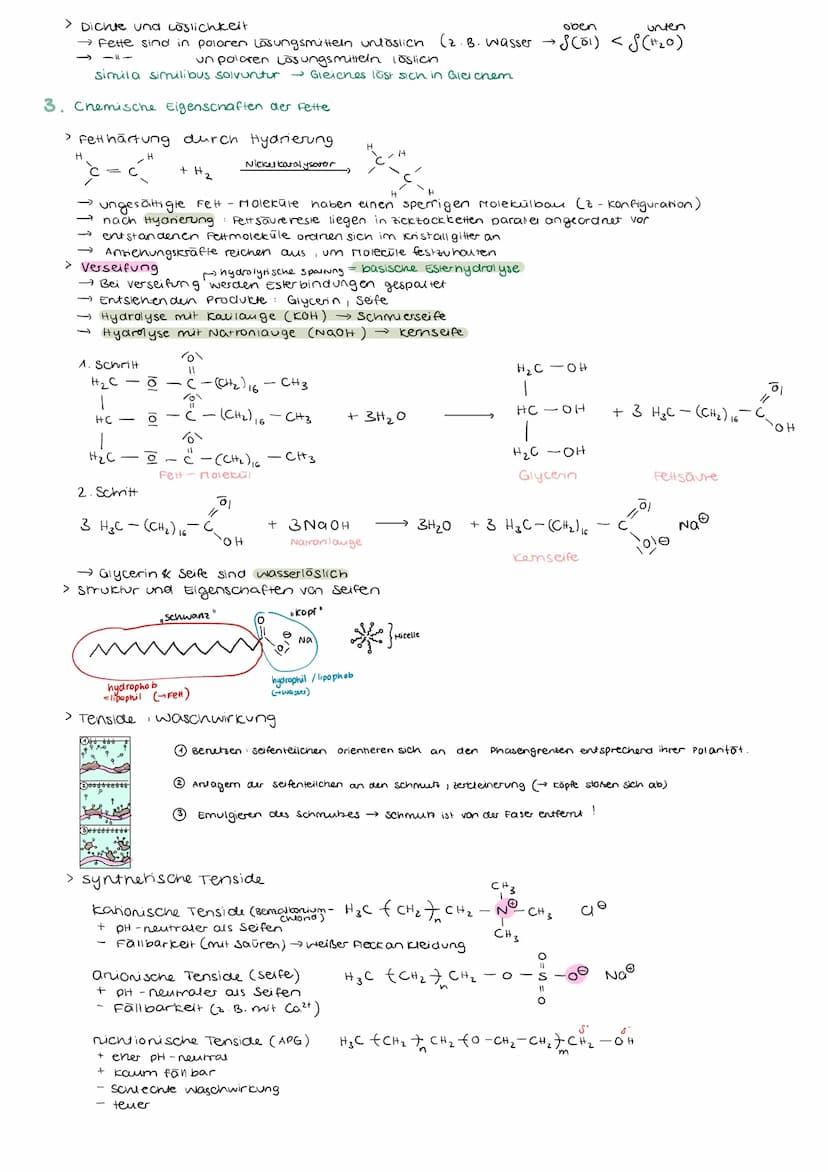 > Dichte und Löslichkeit
→ Fette sind in polaren Lösungsmitteln unlöslich (z.B. Wasser → ϱ(Öl) < ϱ(H₂O)
oben unten
→ -"- unpolaren Lösungsmitteln löslich
simila similibus solvuntur → Gleiches löst sich in Gleichem
3. Chemische Eigenschaften der Fette
> Fetthärtung durch Hydrierung
H H C = C + H₂ Nickelkatalysator → H H C C H H
→ ungesättigte Fett-Moleküle haben einen sperrigen Molekülbau (Z-Konfiguration)
→ nach Hydrierung: Fettsäurereste liegen in Zickzackketten paralel angeordnet vor
→ entstandenen Fettmoleküle ordnen sich im Kristallgitter an
→ Anziehungskräfte reichen aus, um Moleküle festzuhalten
> Verseifung → hydrolytische Spaltung = basische Esterhydrolyse
→ Bei Verseifung werden Esterbindungen gespaltet
→ Entstehenden Produkte: Glycerin, Seife
→ Hydrolyse mit Kalilauge (KOH) → Schmierseife
→ Hydrolyse mit Natronlauge (NaOH) → Kernseife
1. Schritt
H₂C — O — C — (CH₂)₁₆ — CH₃ H₂C — OH
O
HC — O — C — (CH₂)₁₆ — CH₃ + 3H₂O → HC — OH + 3 H₃C — (CH₂)₁₆ — C O OH
O
H₂C — O — C — (CH₂)₁₆ — CH₃ H₂C — OH
O
Fett-Molekül Glycerin Fettsäure
2. Schritt
3 H₃C — (CH₂)₁₆ — C O OH + 3NaOH → 3H₂O + 3 H₃C — (CH₂)₁₆ — C O O⊖ Na⊕
Natronlauge Kernseife
→ Glycerin & Seife sind wasserlöslich
> Struktur und Eigenschaften von Seifen
„Schwanz" „Kopf"
O O ⊖ Na } Micelle
hydrophob hydrophil / lipophob
= lipophil (→Fett) (→Wasser)
> Tenside: Waschwirkung
① Benetzen: Seifenteilchen orientieren sich an den Phasengrenzen entsprechend ihrer Polarität.
② Anlagern der Seifenteilchen an den Schmutz, Zerkleinerung (→ Köpfe stoßen sich ab)
③ Emulgieren des Schmutzes → Schmutz ist von der Faser entfernt!
> Synthetische Tenside
kationische Tenside (Benzalkoniumchlorid) H₃C (CH₂)ₙ CH₂ — N⊕ — CH₃ Cl⊖
CH₃
CH₃
+ pH-neutraler als Seifen
- Fällbarkeit (mit Säuren) → weißer Fleck an Kleidung
anionische Tenside (Seife) H₃C (CH₂)ₙ CH₂ — O — S — O⊖ Na⊕
O
O
+ pH-neutraler als Seifen
- Fällbarkeit (z.B. mit Ca²⁺)
nichtionische Tenside (APG) H₃C (CH₂)ₙ CH₂ (O — CH₂ — CH₂)ₘ CH₂ — OH
δ⁺ δ⁻
+ eher pH-neutral
+ kaum fällbar
- schlechte Waschwirkung
- teuer